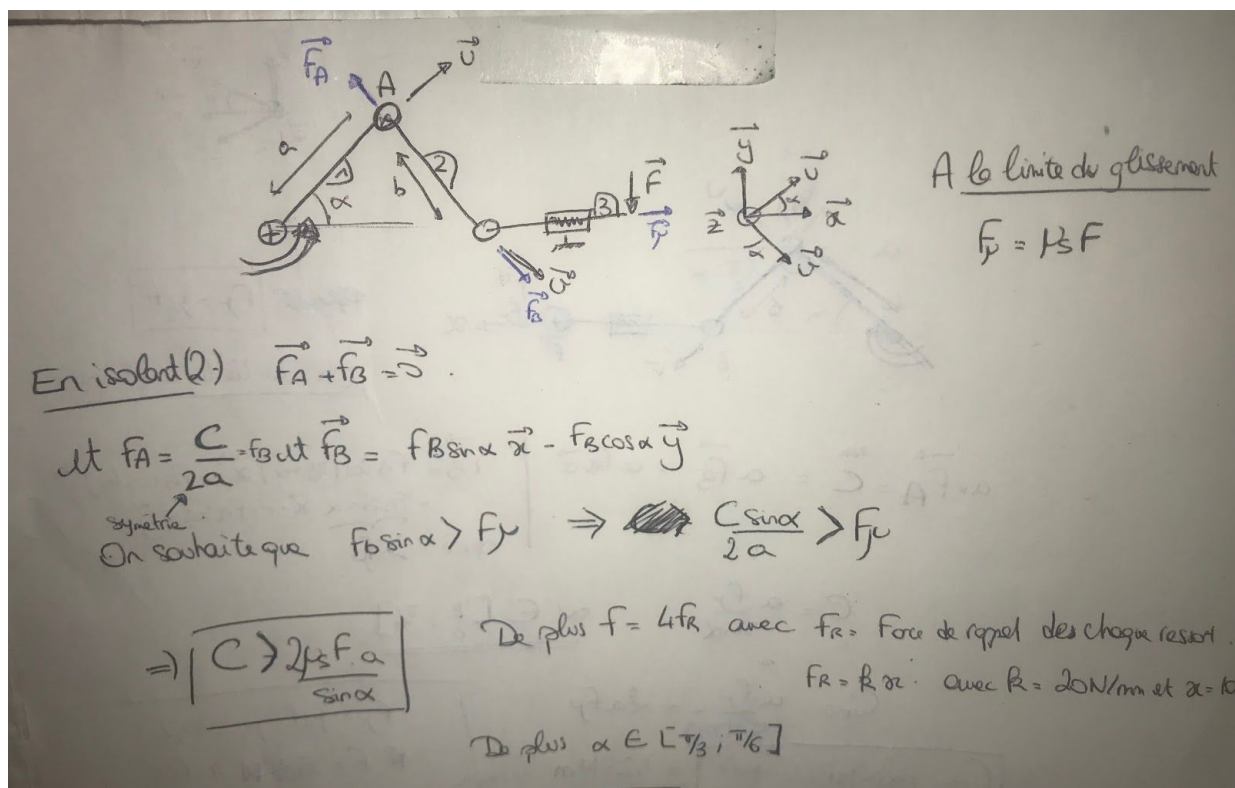 F⃗_A
A
υ⃗
a
1
α
2
b
3
F⃗
F⃗_μ
υ⃗
F⃗_B
y⃗
z⃗
υ⃗
α
x⃗
α
υ⃗
A la limite du glissement
F_μ = μ_s F
En isolant (2) F⃗_A + F⃗_B = 0⃗.
et F_A = C/2a = F_B et F⃗_B = F_B sinα x⃗ - F_B cosα y⃗
symétrie
On souhaite que F_b sinα > F_μ ⇒ C sinα/2a > F_μ
⇒ C > 2μ_s F.a/sinα
De plus F = 4F_R avec F_R = Force de rappel des chaque ressort.
F_R = k x. avec k = 20N/mm et x = 10
De plus α ∈ [π/3 ; π/6]